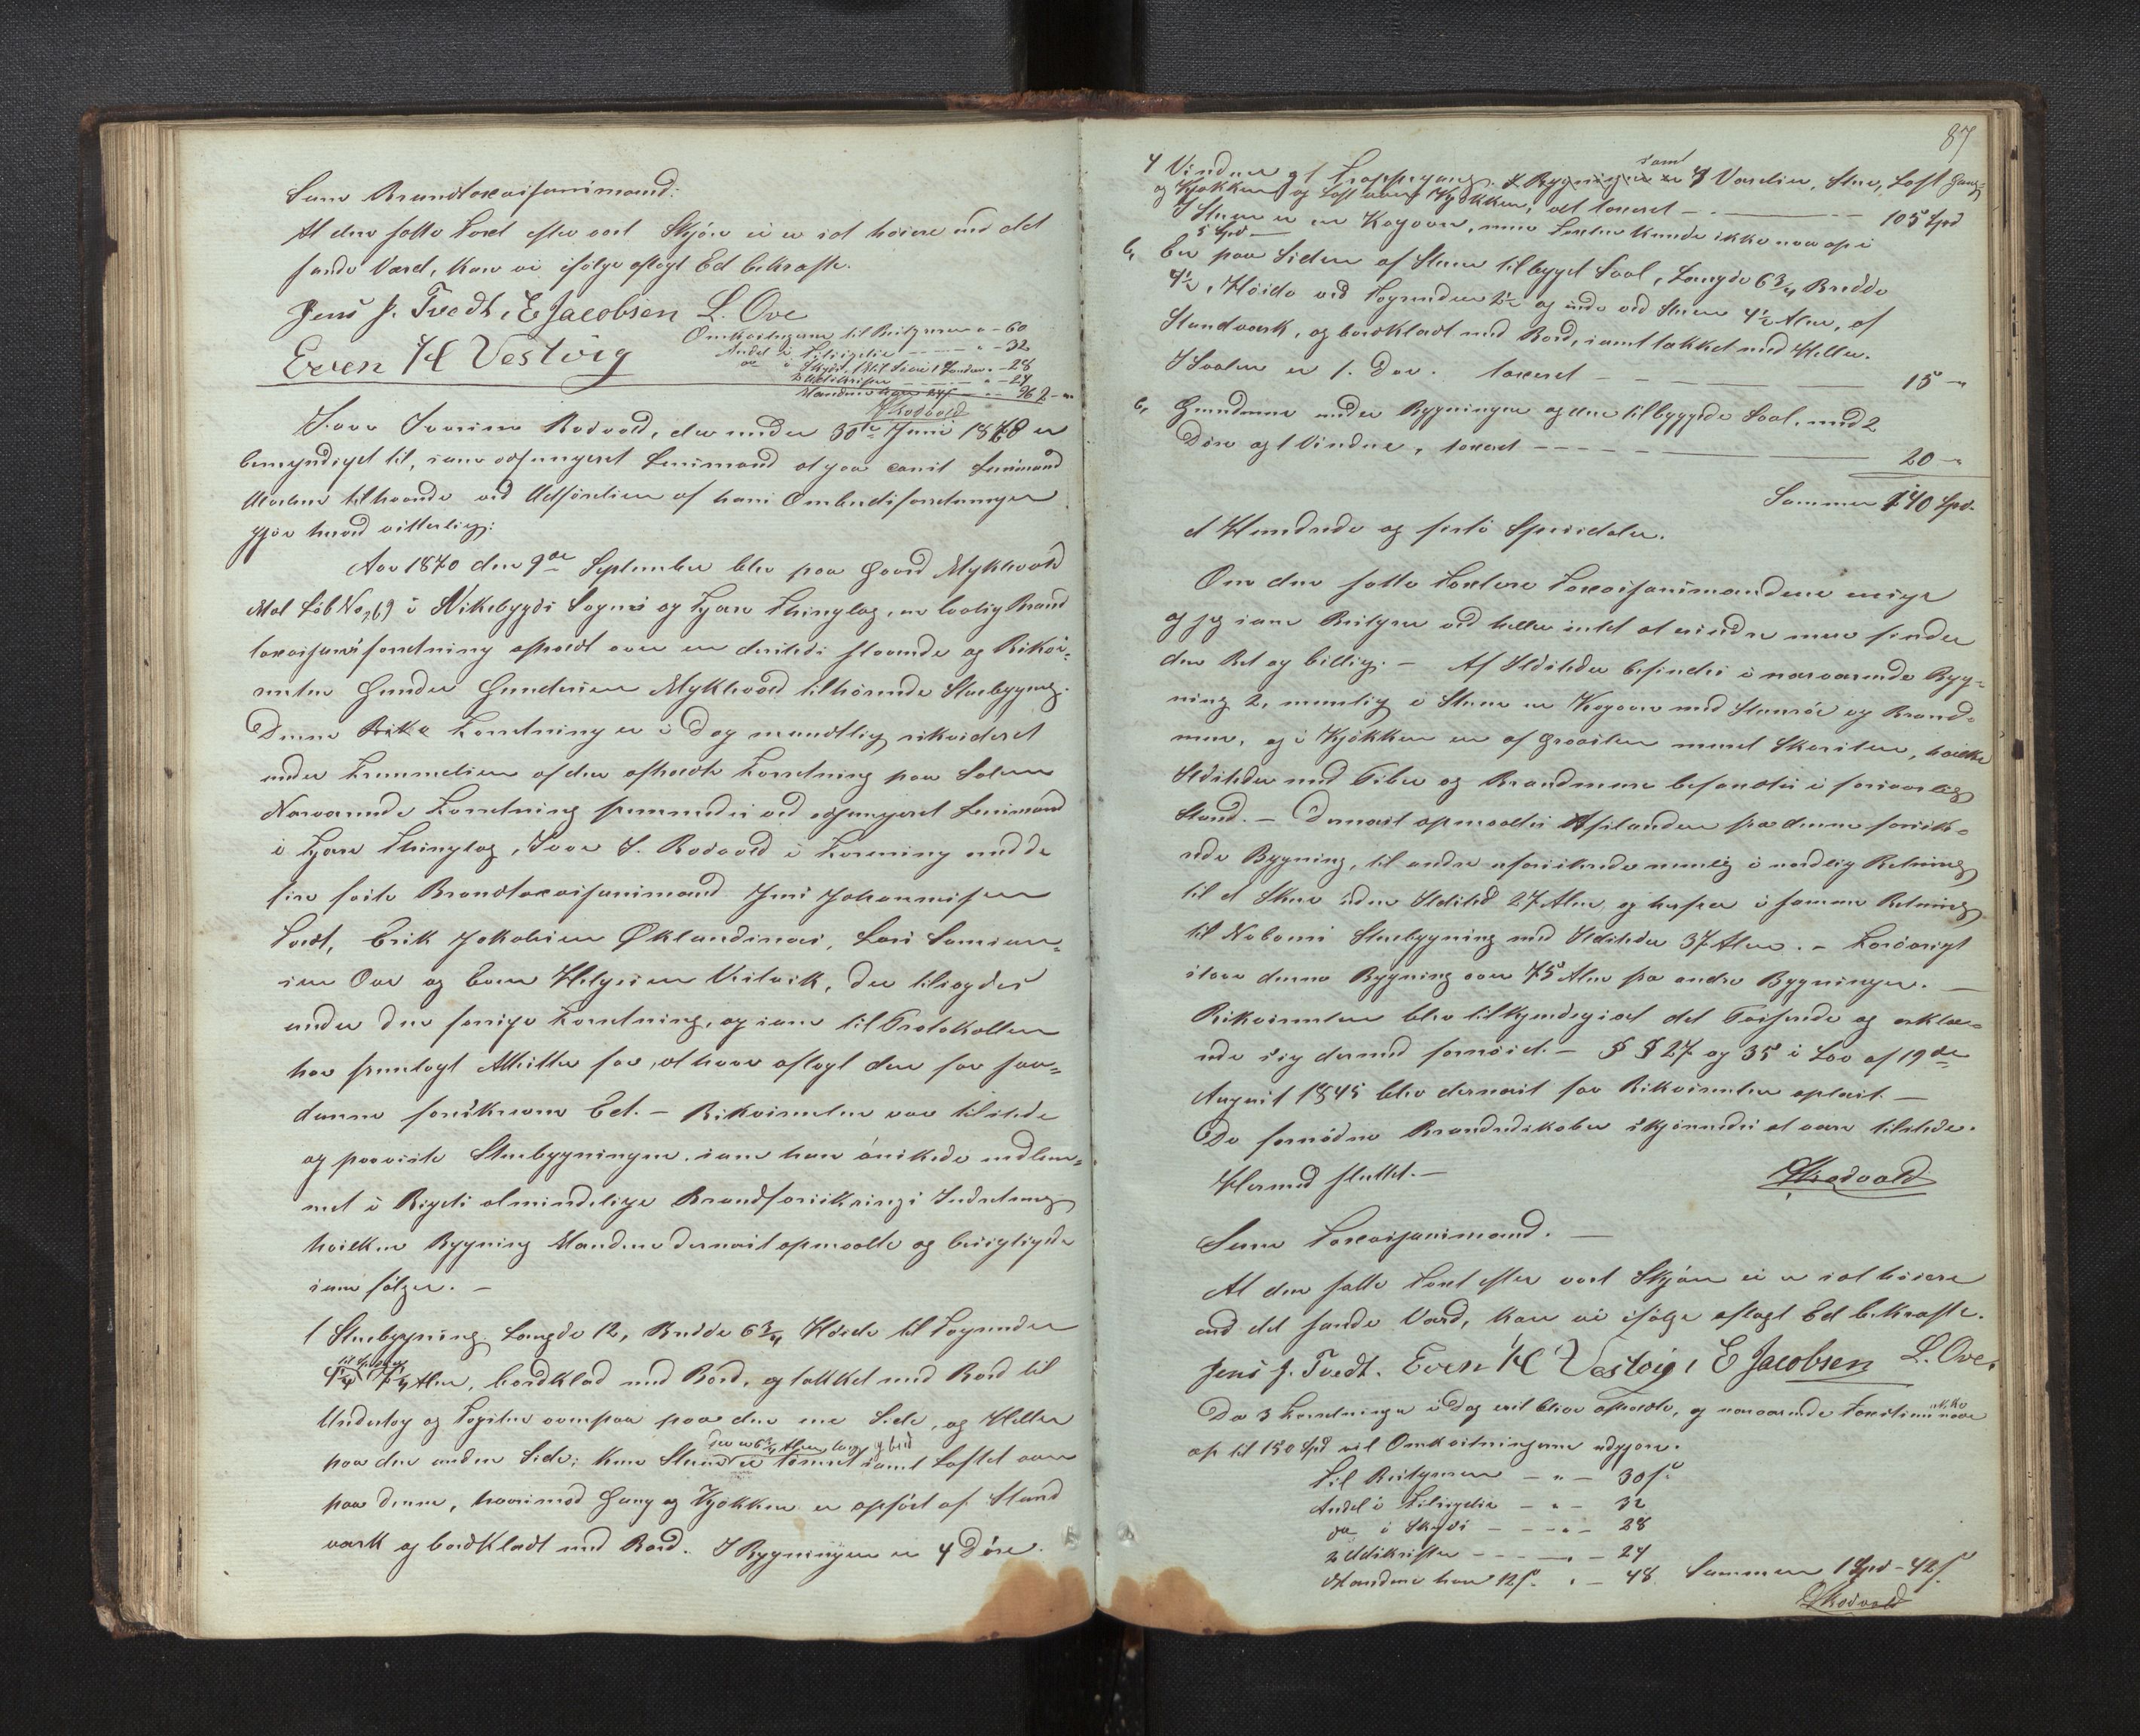 Som Brandtaxationsmænd:
At den satte Taxt efter vort Skjøn ei er sat høiere end det
sande Værd, kan vi ifølge aflagt Ed bekræfte.
Jens J. Tvedt, E Jacobsen L. Ove
Even H Vestvig
Omkostningerne til Bestyreren " - 60
Andel i Tilsigelse " - 32
do i Skyds " - 28
2 Udskrifter " - 24
Mændene hver 24 s
Rodvold
Iver Iversen Rodvold, der under 30te Juni 1868 er
bemyndiget til, som constitueret Lensmand at gaa Lensmand
tilhaande ved Udførelsen af hans Ombudsforretninger
gjør herved vitterligt:
Aar 1870 den 9de September blev paa Gaard Myklevold
Mat Løb No 69 i Vikebygds Sogn og Fjære Thinglag, en lovlig Brand
taxationsforretning afholdt over en dersteds staaende og Rekvi-
renten Gunder Gundersen Myklevold tilhørende Stuebygning.
Denne Forretning er i Dag mundtlig rekvireret
under Fremmelsen af den afholdte Forretning paa
Nærværende Forretning fremmedes ved constitueret Lensmand
i Fjære Thinglag, Iver I. Rodvold i Forening med de
fire faste Brandtaxationsmænd Jens Johannesen
Tvedt, Erik Jakobsen Øklandsnes, Lars Larsen
Ove og Even Helgesen Vestvik, der tilsagdes
under den forrige Forretning, og som til Protokollen
har fremlagt Attester for, at have aflagt den for saa-
danne foreskrevne Ed. - Rekvirenten var tilstede
og paaviste Stuebygningen, som han ønskede indlem-
met i Rigets almindelige Brandforsikrings Indretning
hvilken Bygning Mændene dernæst opmaalte og besigtigede
som følger. -
1 Stuebygning. Længde 12, Bredde 6 3/4 Høide til Tagrenden
Alen, bordklæd med Bord, og tækket med Bord til
Undertag og Tagsten ovenpaa paa den ene Side, og Heller
paa den anden Side; Kun Stuen er tømret samt Loftet oven
paa denne, hvorimod Gang og Kjøkken er opført af Stand
værk og bordklædt med Bord. I Bygningen er 4 Døre.
87
4 Vinduer og 1 Trappegang. samt 4 Værelser, Stue, Loft Gang
og Kjøkken og Loft over Kjøkken, alt taxeret - 105 Spd
I Stuen er en Kogeovn, men Taxten kunde ikke naa op i
5 Spd
b, En paa Siden af Stuen tilbygget Sval, Længde 6 3/4 Bredde
4 1/2, Høide ved Tagrenden 2 1/2 og inde ved Stuen 4 1/2 Alen, af
Standværk, og bordklædt med Bord, samt tækket med Heller.
I Svalen er 1 Dør. taxeret - 15 -
c, Grundmur under Bygningen og den tilbyggede Sval, med 2
Døre og 1 Vindue, taxeret - 20 -
Summa 140 Spd.
et Hundrede og firti Speciedaler.
Om den satte Taxt ere Taxationsmændene enige
og jeg som Bestyrer ved heller intet at erindre men finder
den Ret og billig. - Af Ildsteder befindes i nærværende Byg-
ning 2, nemlig i Stuen en Kogeovn med Steenrør og Brand-
mur, og i Kjøkken en af Graasten muret Skorsten, hvilke
Ildsteder med Piber og Brandmure befandtes i forsvarlig
Stand. - Dernæst opmaaltes Afstanden fra denne forsik-
rede Bygning, til andre uforsikrede nemlig i nordlig Retning
til et Skur uden Ildsted 27 Alen, og herfra i samme Retning
til Naboens Stuebygning med Ildsteder 37 Alen. - Forøvrigt
staar denne Bygning over 75 Alen fra andre Bygninger. -
Rekvirenten blev tilkjendegivet det Passerede og erklæ-
rede sig dermed fornøiet. - § § 27 og 35 i Lov af 19de
August 1845 blev dernæst for Rekvirenten oplæst. -
De fornødne Brandredskaber skjønnedes at være tilstede.
Hermed sluttet. -
Rodvold
Som Taxationsmænd. -
At den satte Taxt efter vort Skjøn ei er sat høiere
end det sande Værd, kan vi ifølge aflagt Ed bekræfte.
Jens J. Tvedt. Even H Vestvig, E Jacobsen L. Ove.
Da 3 Forretninger i Dag ere blevne afholdte, og nærværende Taxtsum ikke naaer
op til 150 Spd vil Omkostningerne udgjøre.
Til Bestyreren - " - 30 s
Andel i Tilsigelse - " - 32
do i Skyds - " - 28
2 Udskrifter - " - 24
Mændene hver 12 s. " - 48 Summa 1 Spd - 42 s
Rodvold